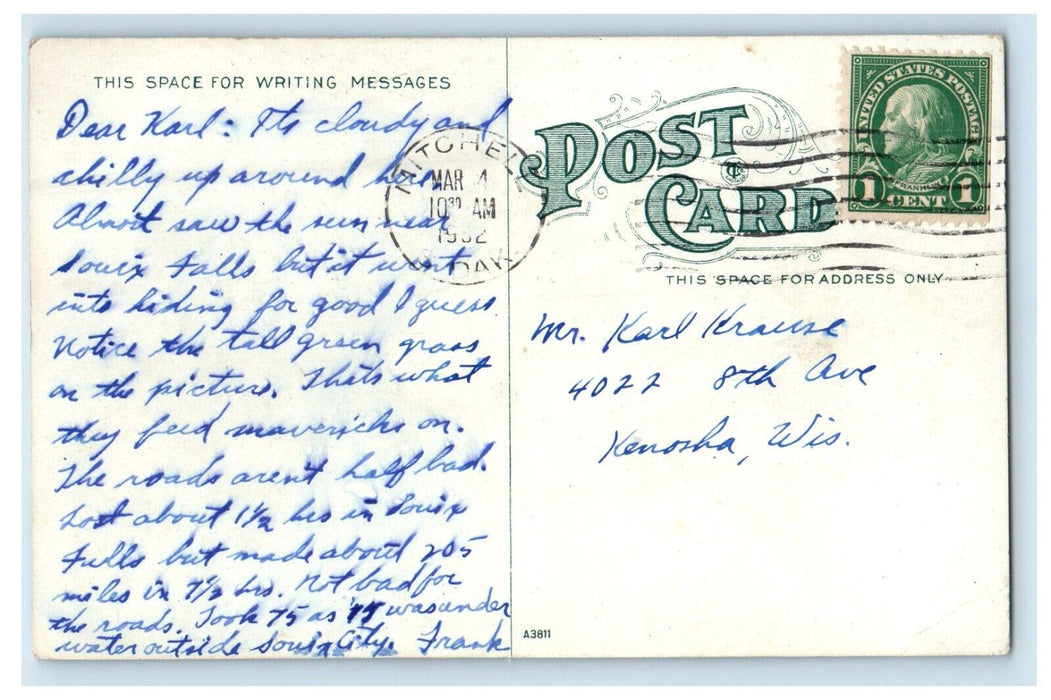 THIS SPACE FOR WRITING MESSAGES
Dear Karl: Its cloudy and
chilly up around here
Almost saw the sun near
Souix Falls but it went
into hiding for good I guess.
Notice the tall green grass
on the picture. Thats what
they feed mavericks on.
The roads arent half bad.
Lost about 1½ hrs in Souix
Falls but made about 205
miles in 7½ hrs. Not bad for
the roads. Took 75 as 77 was under
water outside Souix City. Frank
MITCHELL
MAR 4
10 30 AM
1932
S. DAK
POST
CARD
UNITED STATES POSTAGE
FRANKLIN
1 CENT 1
THIS SPACE FOR ADDRESS ONLY
Mr. Karl Krause
4022 8th Ave
Kenosha, Wis.
A3811